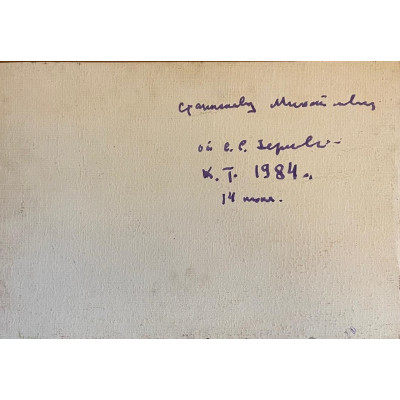 Станиславу Михайловичу
от С. С.
К. Т. 1984 г.
14 июня.